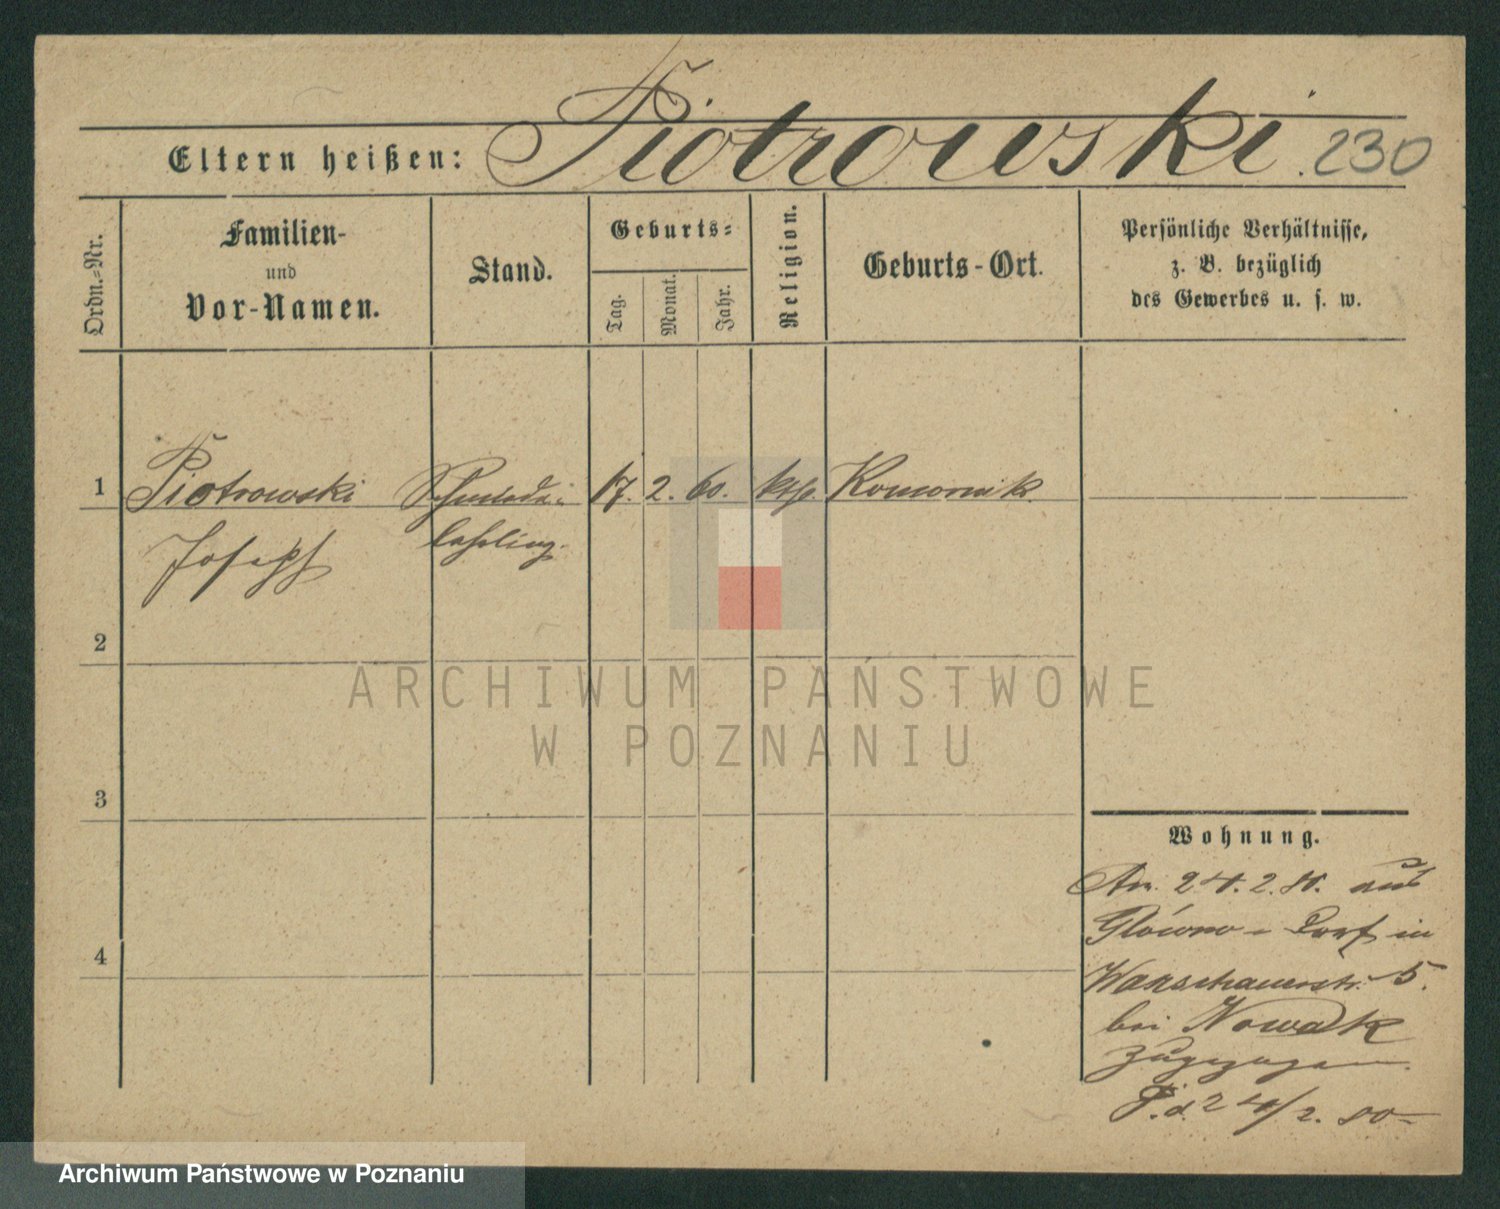 Eltern heißen: Piotrowski. 230
Ordn.-Nr.
Familien-
und
Vor-Namen.
Stand.
Geburts-
Tag.
Monat.
Jahr.
Religion.
Geburts-Ort.
Persönliche Verhältnisse,
z. B. bezüglich
des Gewerbes u. s. w.
1 Piotrowski 17. 2. 60. kth. Komornik
Joseph lehrling.
2
ARCHIWUM PAŃSTWOWE
W POZNANIU
3
Wohnung.
Am 24. 2. 80. aus
Główno - Dorf in
Warschauerstr. 5.
bei Nowak
zugezogen.
P. d. 24/2. 80
4
Archiwum Państwowe w Poznaniu